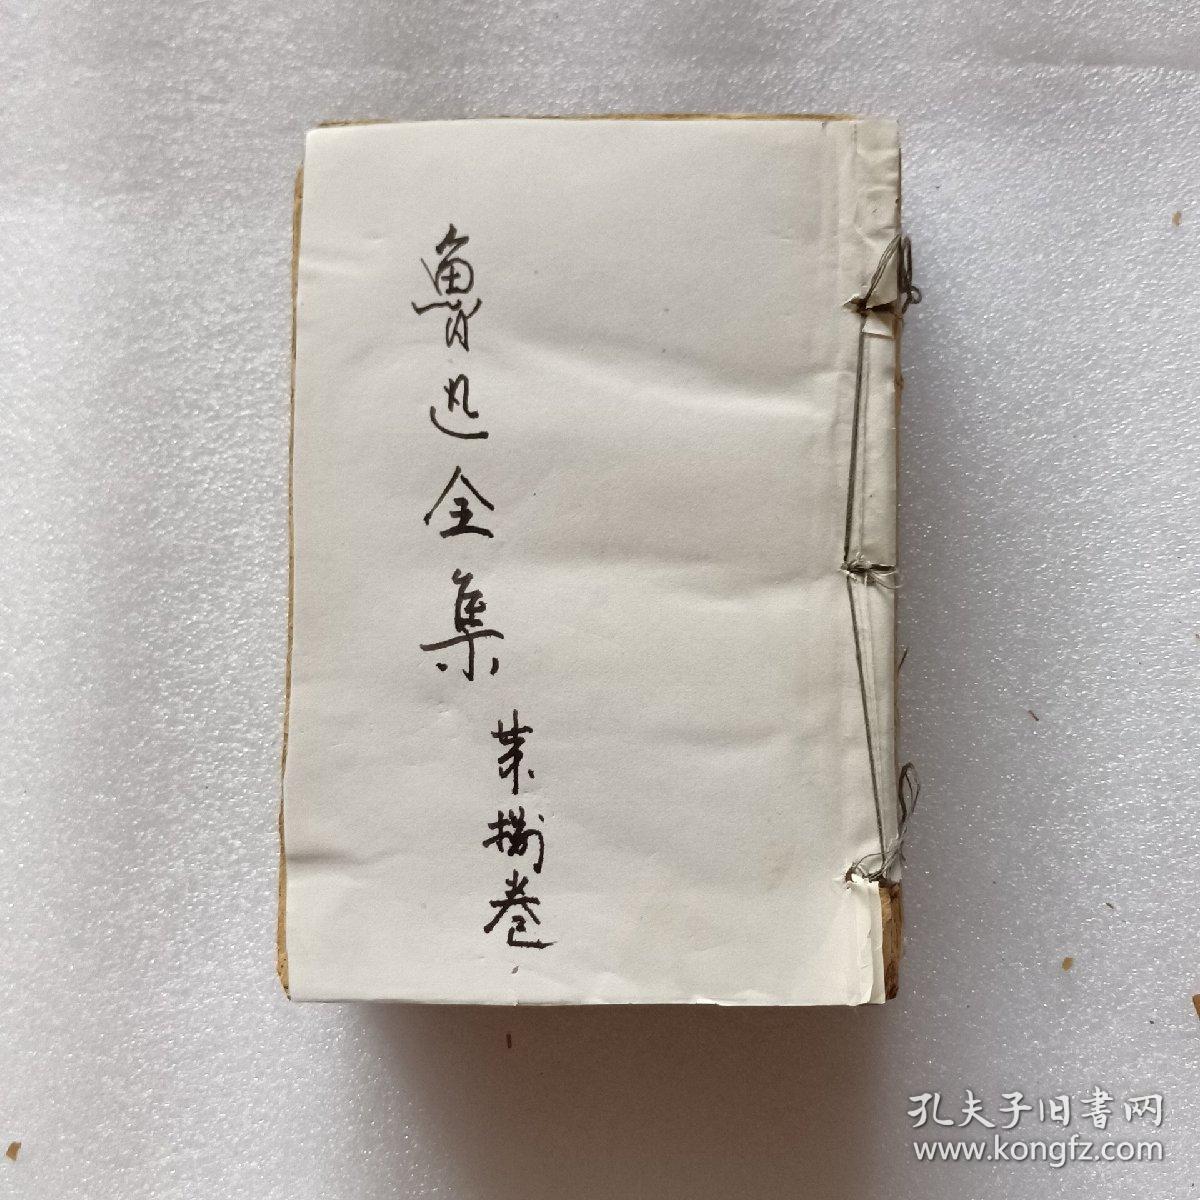 魯迅全集
第捌卷
孔夫子旧書网
www.kongfz.com